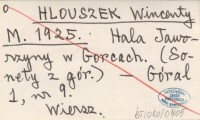 HŁOUSZEK Wincenty
M. 1925. Hala Jawo-
rzyny w Gorcach. (So-
nety z gór.) — Góral
1, nr 9.
Wiersz.